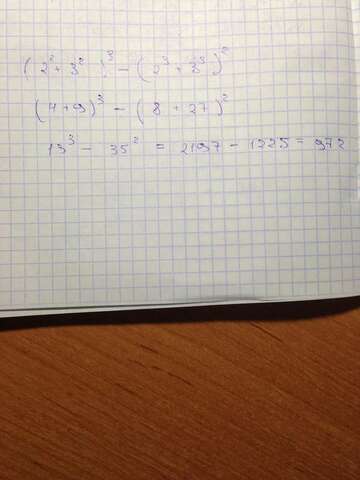 (2² + 3²)³ - (2³ + 3³)²
(4 + 9)³ - (8 + 27)²
13³ - 35² = 2197 - 1225 = 972